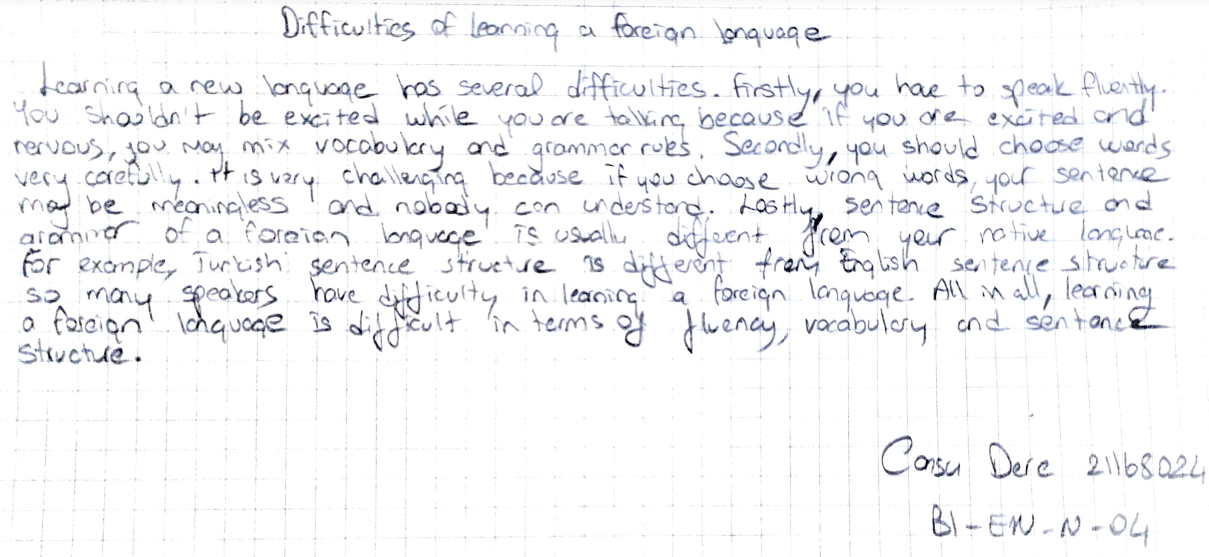 Difficulties of learning a foreign language
Learning a new language has several difficulties. Firstly, you have to speak fluently.
You shouldn't be excited while you are talking because if you are excited and
nervous, you may mix vocabulary and grammar rules. Secondly, you should choose words
very carefully. It is very challenging because if you choose wrong words, your sentence
may be meaningless and nobody can understand. Lastly, sentence structure and
grammar of a foreign language is usually different from your native language.
For example, Turkish sentence structure is different from English sentence structure
so many speakers have difficulty in learning a foreign language. All in all, learning
a foreign language is difficult in terms of fluency, vocabulary and sentence
structure.
Cansu Dere 21168024
B1-EN-N-04